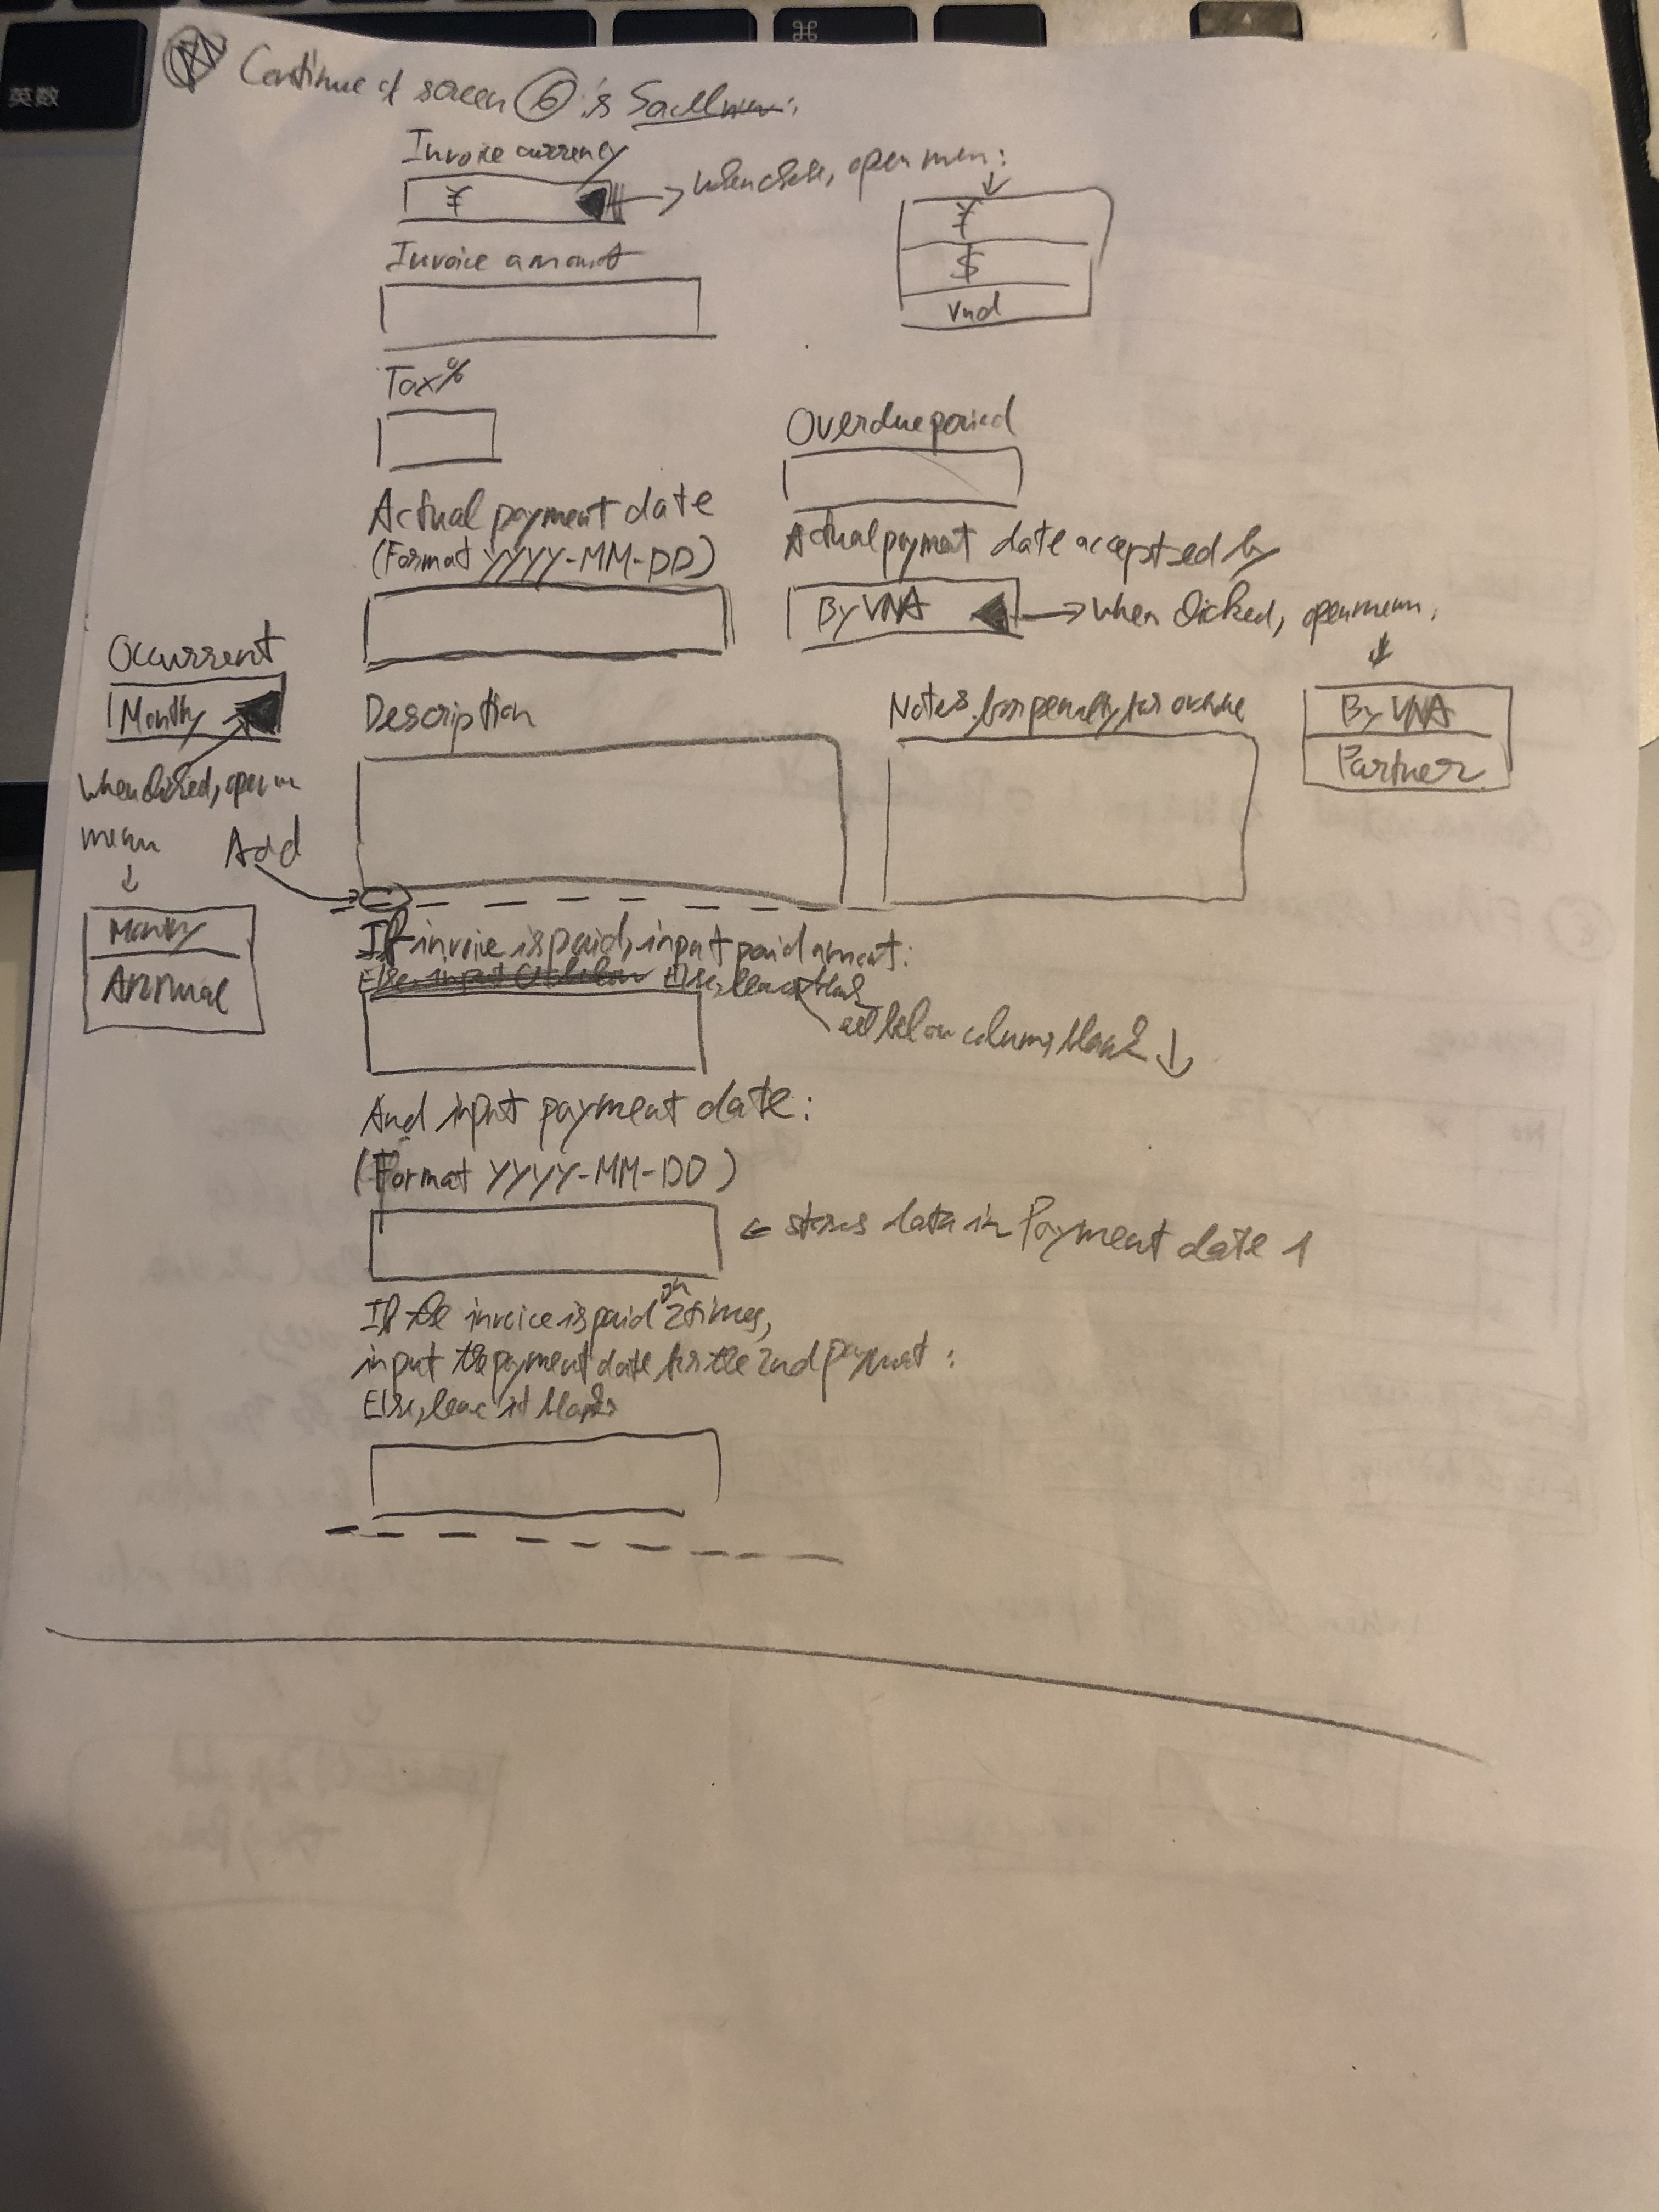 英数
⌘
Continue of screen ⑥ is
Invoice currency
¥
open menu:
¥
$
vnd
Invoice amount
Tax%
Overdue period
Actual payment date
(Format YYYY-MM-DD)
Actual payment date accepted by
By VNA
→ when clicked, open menu,
By VNA
Partner
Occurrent
Monthly
when clicked, open
menu
Monthly
Annual
Add
Description
Notes for penalty for overdue
If invoice is paid, input paid amount:
Else, leave
all below columns blank ↓
And input payment date:
(Format YYYY-MM-DD)
← stores data in Payment date 1
If the invoice is paid on 2 times,
input the payment date for the 2nd payment:
Else, leave it blank